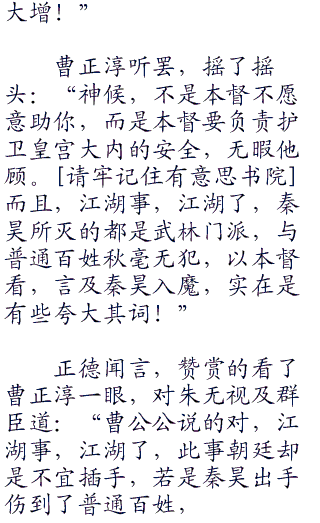 大增！”
曹正淳听罢，摇了摇
头：“神候，不是本督不愿
意助你，而是本督要负责护
卫皇宫大内的安全，无暇他
顾。[请牢记住有意思书院]
而且，江湖事，江湖了，秦
昊所灭的都是武林门派，与
普通百姓秋毫无犯，以本督
看，言及秦昊入魔，实在是
有些夸大其词！”
正德闻言，赞赏的看了
曹正淳一眼，对朱无视及群
臣道：“曹公公说的对，江
湖事，江湖了，此事朝廷却
是不宜插手，若是秦昊出手
伤到了普通百姓，